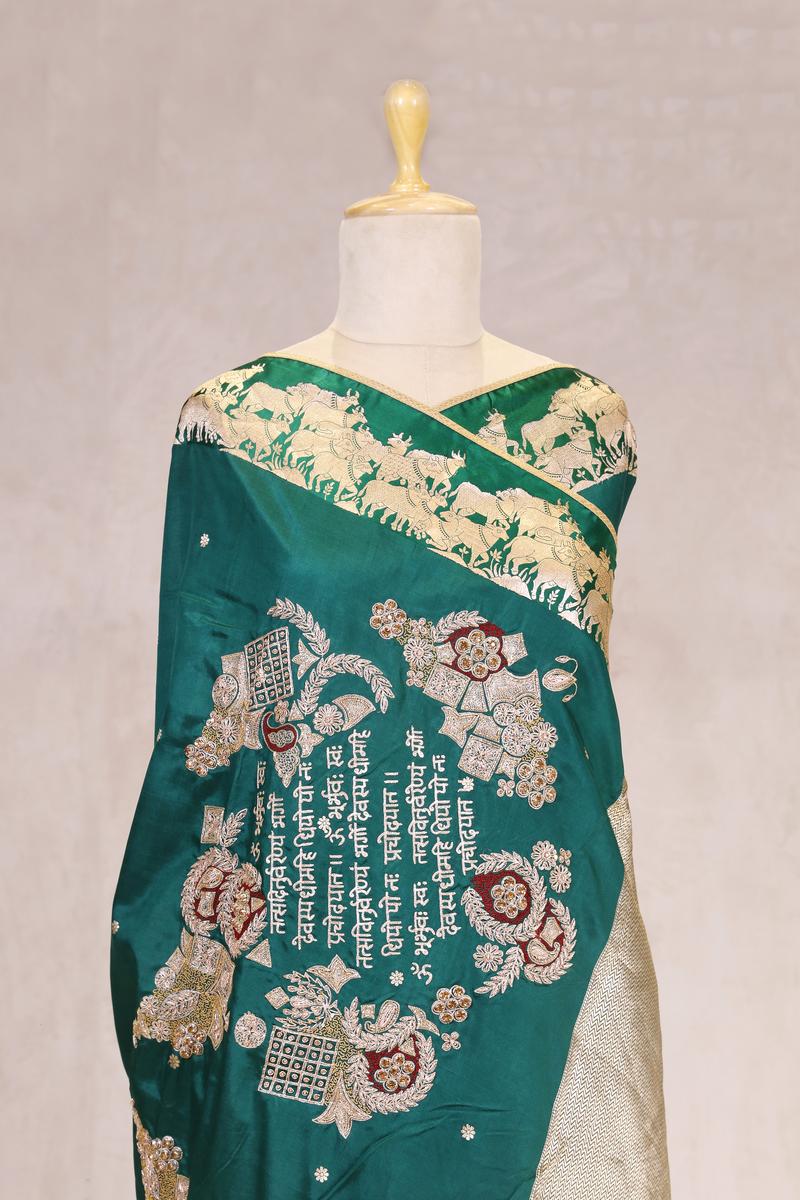 ॐ भर्भुवः स्वः
तत्सवितुर्वरेण्यं भर्गो
देवस्य धीमहि धियो यो नः
प्रचोदयात ।। ॐ भर्भुवः स्वः
तत्सवितुर्वरेण्यं भर्गो देवस्य धीमहि
धियो यो नः प्रचोदयात ।।
ॐ भर्भुवः स्वः तत्सवितुर्वरेण्यं भर्गो
देवस्य धीमहि धियो यो नः
प्रचोदयात